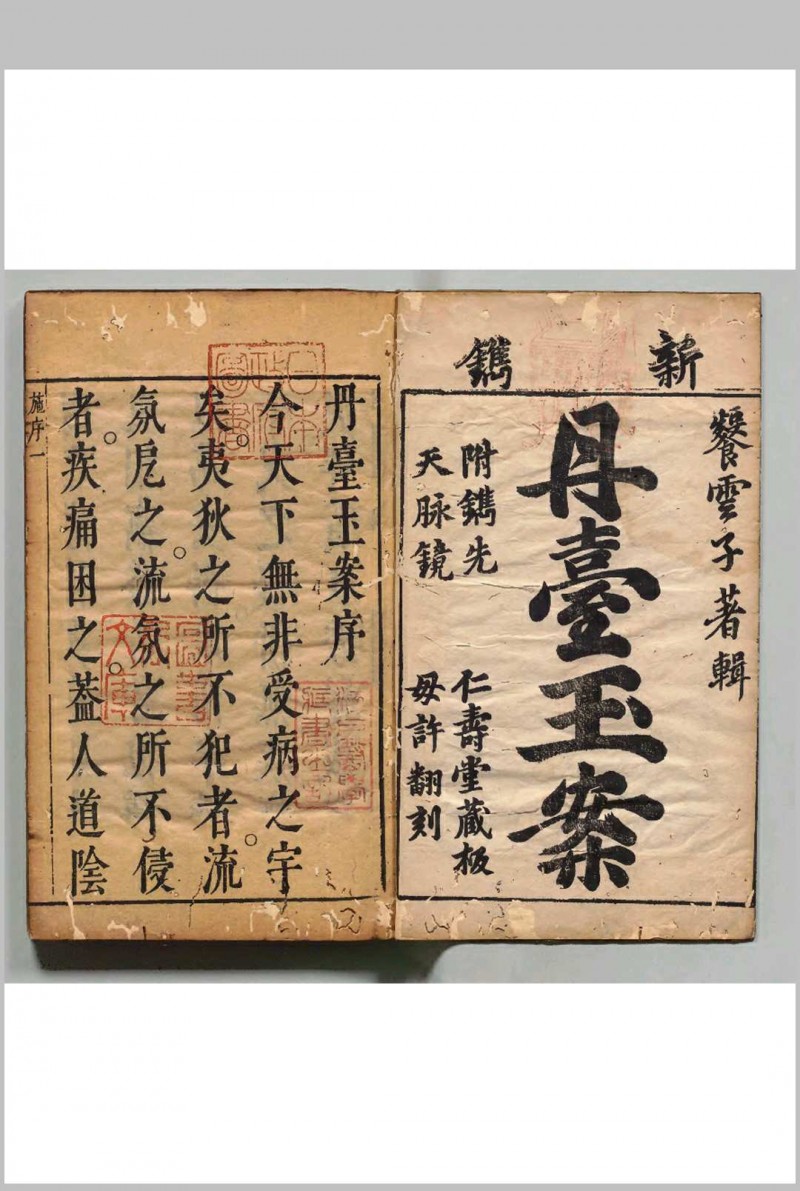 新鐫
餐雲子著輯
丹臺玉案
附鐫先
天脉鏡
仁壽堂蔵板
毋許翻刻
丹臺玉案序
今天下無非受病之宇
矣。夷狄之所不犯者。流
氛戹之。流氛之所不侵
者。疾痛困之。葢人道陰
施序一